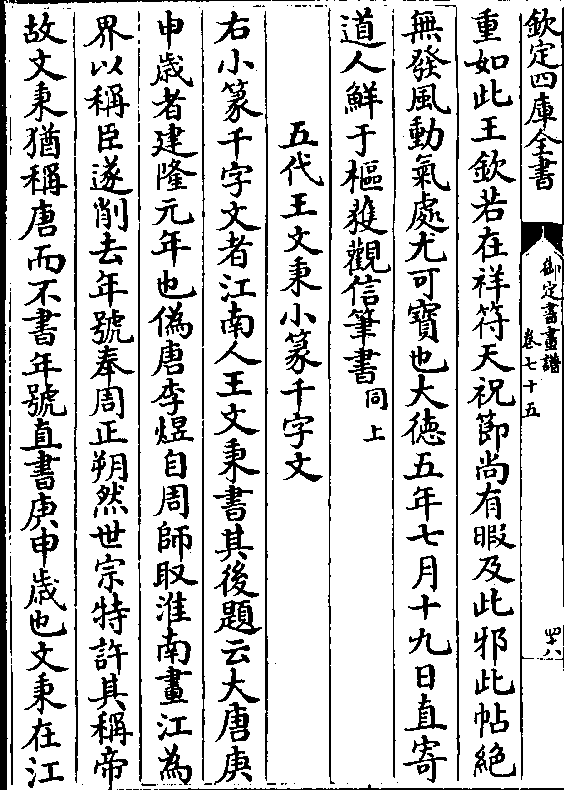 欽定四庫全書
御定書畫譜
卷七十五
四十八
重如此王欽若在祥符天祝節尚有暇及此邪此帖絶
無發風動氣處尤可寶也大徳五年七月十九日直寄
道人鮮于樞獲觀信筆書同上
五代王文秉小篆千字文
右小篆千字文者江南人王文秉書其後題云大唐庚
申歳者建隆元年也僞唐李煜自周師取淮南畫江為
界以稱臣遂削去年號奉周正朔然世宗特許其稱帝
故文秉猶稱唐而不書年號直書庚申歳也文秉在江